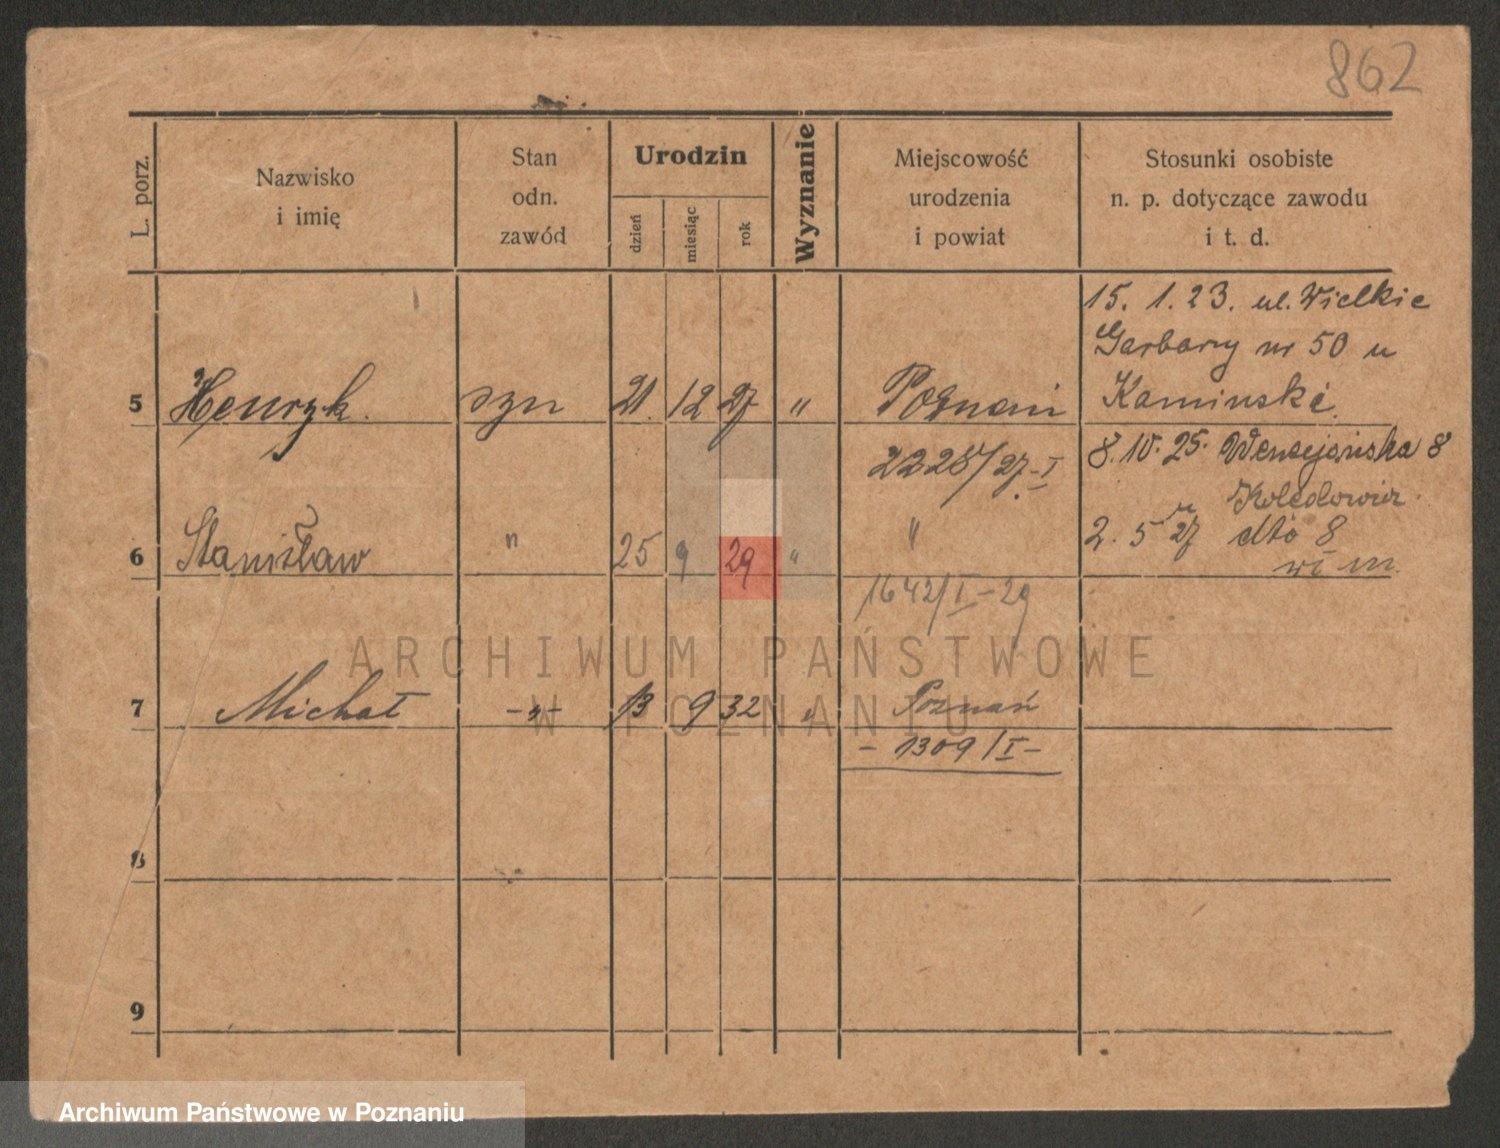 862
L. porz.
Nazwisko
i imię
Stan
odn.
zawód
Urodzin
dzień
miesiąc
rok
Wyznanie
Miejscowość
urodzenia
i powiat
Stosunki osobiste
n. p. dotyczące zawodu
i t. d.
15. 1. 23. ul. Wielkie
Garbary nr 50 u
5 Henryk. syn 21. 12 27 " Poznań Kaminski.
2228/27-I 8. 10. 25. 8
6 Stanisław " 25 9 29 " " 2. 5 27 dto 8
1642/I-29 m.
7 Michał -"- 13 9 32 " Poznań
- 1309/I -
8
9
ARCHIWUM PAŃSTWOWE
W POZNANIU
Archiwum Państwowe w Poznaniu